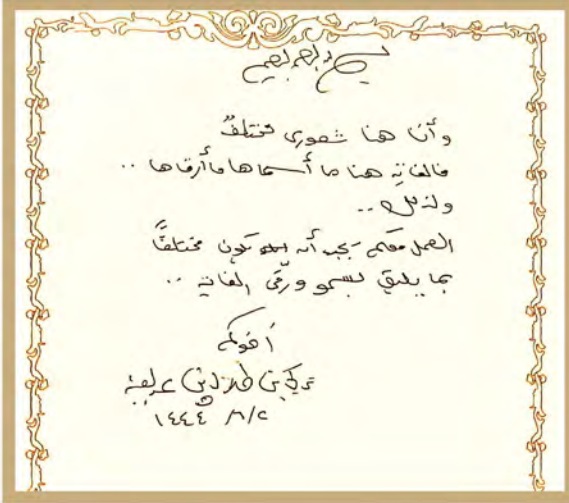 بسم الله الرحمن الرحيم
وأنا هنا شعوري مختلفٌ
فالغاية هنا ما أسماها ما أرقاها ..
ولذلك ..
العمل معكم يجب أن يكون مختلفًا
بما يليق بسمو ورقيّ الغاية ..
أخوكم
تركي بن طلال بن
٢/٨ ١٤٤٤